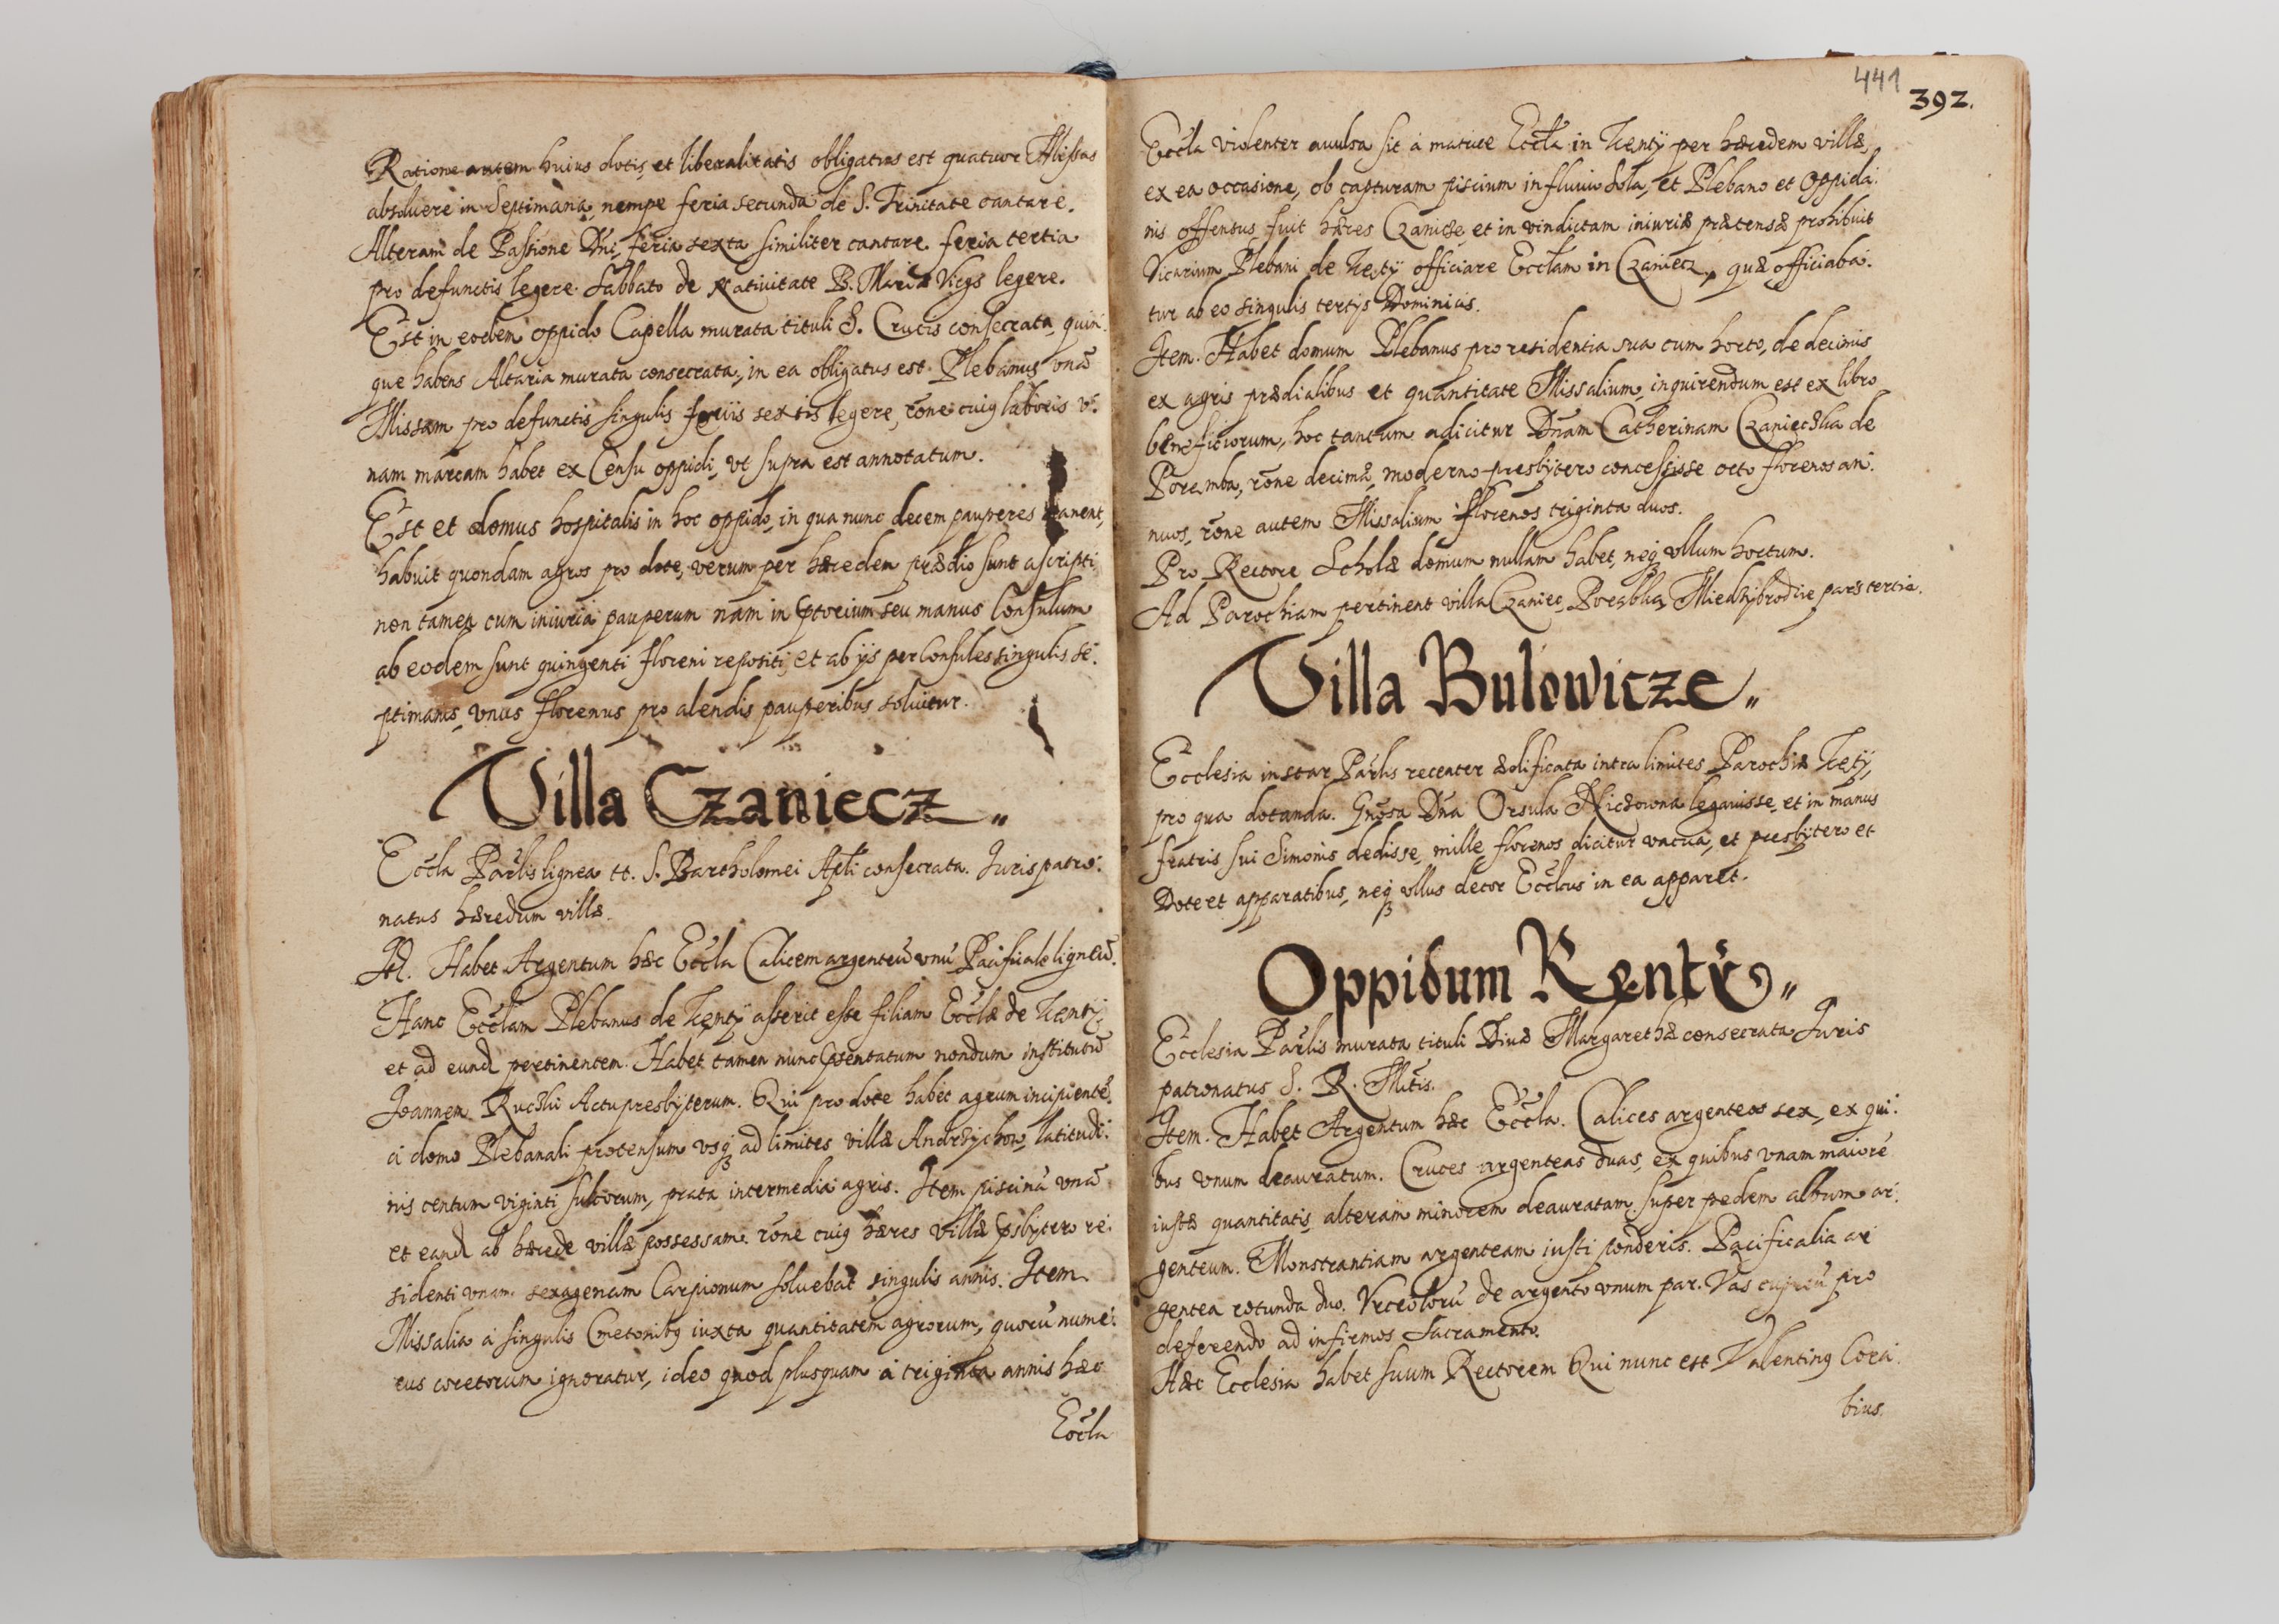 Ratione autem huius dotis, et liberalitatis obligatus est quatuor Missas
absoluere in Septimana, nempe feria secunda de S. Trinitate cantare.
Alteram de Passione Dni, feria sexta similiter cantare. feria tertia
pro defunctis legere. Sabbato de Natiuitate B. Mariæ Virgs legere.
Est in eodem oppido Capella murata tituli S. Crucis consecrata, quin:
que habens Altaria murata consecrata, in ea obligatus est Plebanus vnā
Missam pro defunctis singulis ferijs sextis legere, rōne cuiq laboris v:
nam marcam habet ex Censu oppidi, vt supra est annotatum.
Est et domus hospitalis in hoc oppido, in qua nunc decem pauperes manent,
habuit quondam agros pro dote, verum per hæredem prædio sunt ascripti,
non tamen cum iniuria pauperum nam in Ptorium seu manus Consulum
ab eodem sunt quingenti floreni repositi, et ab ijs per Consules singulis se:
ptimanis, vnus florenus pro alendis pauperibus soluitur.
Villa Czaniecz
Eccla Parlis lignea tt. S. Bartholomei Apli consecrata. Iuris patro:
natus hæredum villæ.
Itd. Habet Argentum hæc Eccla Calicem argenteū vnū Pacificale ligneū.
Hanc Ecclam Plebanus de Kenty asserit esse filiam Ecclæ de Kenty,
et ad eund pertinentem. Habet tamen nunc Psentatum nondum institutū
Joannem Ruczki Actu presbyterum. Qui pro dote habet agrum incipientē
a domo Plebanali protensum vsq ad limites villæ Andrzychow, latitudi:
nis centum viginti sulcorum, prata intermedia agris. Item piscinā vnā
et eand ab hærede villæ possessam. rōne cuiq hæres villæ Psbytero re:
sidenti vnam sexagenam Carpionum soluebat singulis annis. Item
Missalia a singulis Cmetonibq iuxta quantitatem agrorum, quorū nume:
rus coretorum ignoratur, ideo quod plusquam a triginta annis hæc
Eccla
441
392.
Eccla violenter auulsa sit a matrice Eccla in Kenty per hæredem villæ,
ex ea occasione, ob capturam piscium in fluuio Sola, et Plebano et Oppida:
nis offensus fuit hæres Czaniecæ, et in vindictam iniuriæ prætensæ prohibuit
Vicarium Plebani de Kęty officiare Ecclam in Czaniecz, quæ officiaba:
tur ab eo singulis tertijs Dominicis.
Item. Habet domum Plebanus pro residentia sua cum horto, de decimis
ex agris prædialibus et quantitate Missalium, inquirendum est ex libro
beneficiorum, hoc tantum adicitur Dnam Catherinam Czaniecska de
Poremba, rōne decimæ, moderno presbytero concessisse octo florenos an:
nuos, rōne autem Missalium florenos triginta duos.
Pro Rectore Scholæ domum nullam habet, neq vllum hortum.
Ad Parochiam pertinent villa Czaniec, Porabka, Miedzybrodzie pars tertia.
Villa Bulowicze
Ecclesia instar Parlis recenter ædificata intra limites Parochiæ Kęty,
pro qua dotanda. Gnosa Dna Orsula legauisse, et in manus
fratris sui Simonis dedisse, mille florenos dicitur vacua, et presbytero et
Dote et apparatibus, neq vllus decor Ecclcus in ea apparet.
Oppidum Kenty
Ecclesia Parlis murata tituli Diuæ Margarethæ consecrata Iuris
patronatus S. R. Mtis.
Item. Habet Argentum hæc Eccla. Calices argenteos sex, ex qui:
bus vnum deauratum. Cruces argenteas duas, ex quibus vnam maiorē
iustæ quantitatis, alteram minorem deauratam super pedem album ar:
genteum. Monstrantiam argenteam iusti ponderis. Pacificalia ar
gentea rotunda duo. Vrceolorū de argento vnum par. Vas cupreū pro
deferendo ad infirmos Sacramento.
Hæc Ecclesia habet suum Rectorem Qui nunc est Valentinq Cora:
bius.